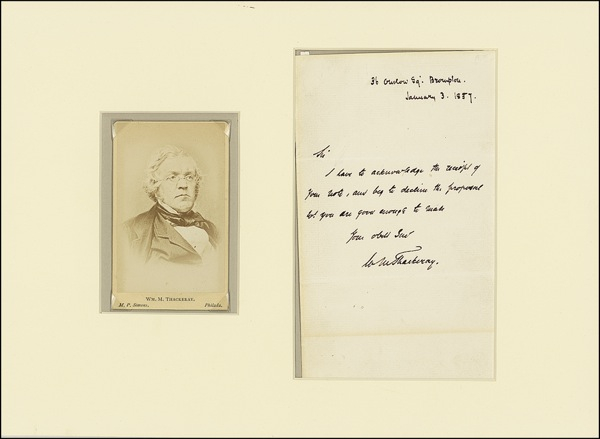 36 Onslow Sqr. Brompton.
January 3. 1857.
Sir
I have to acknowledge the receipt of
your note, and beg to decline the proposal
wh. you are good enough to make
Your obdt Servt
W M Thackeray.
WM. M. THACKERAY.
M. P. SIMONS. Philada.